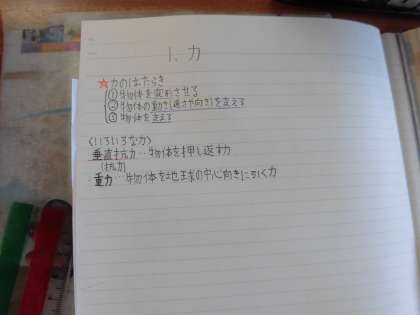 1. 力
☆力のはたらき
①物体を変形させる
②物体の動き(速さや向き)を変える
③物体を支える
〈いろいろな力〉
垂直抗力…物体を押し返す力
(抗力)
重力…物体を地球の中心向きに引く力